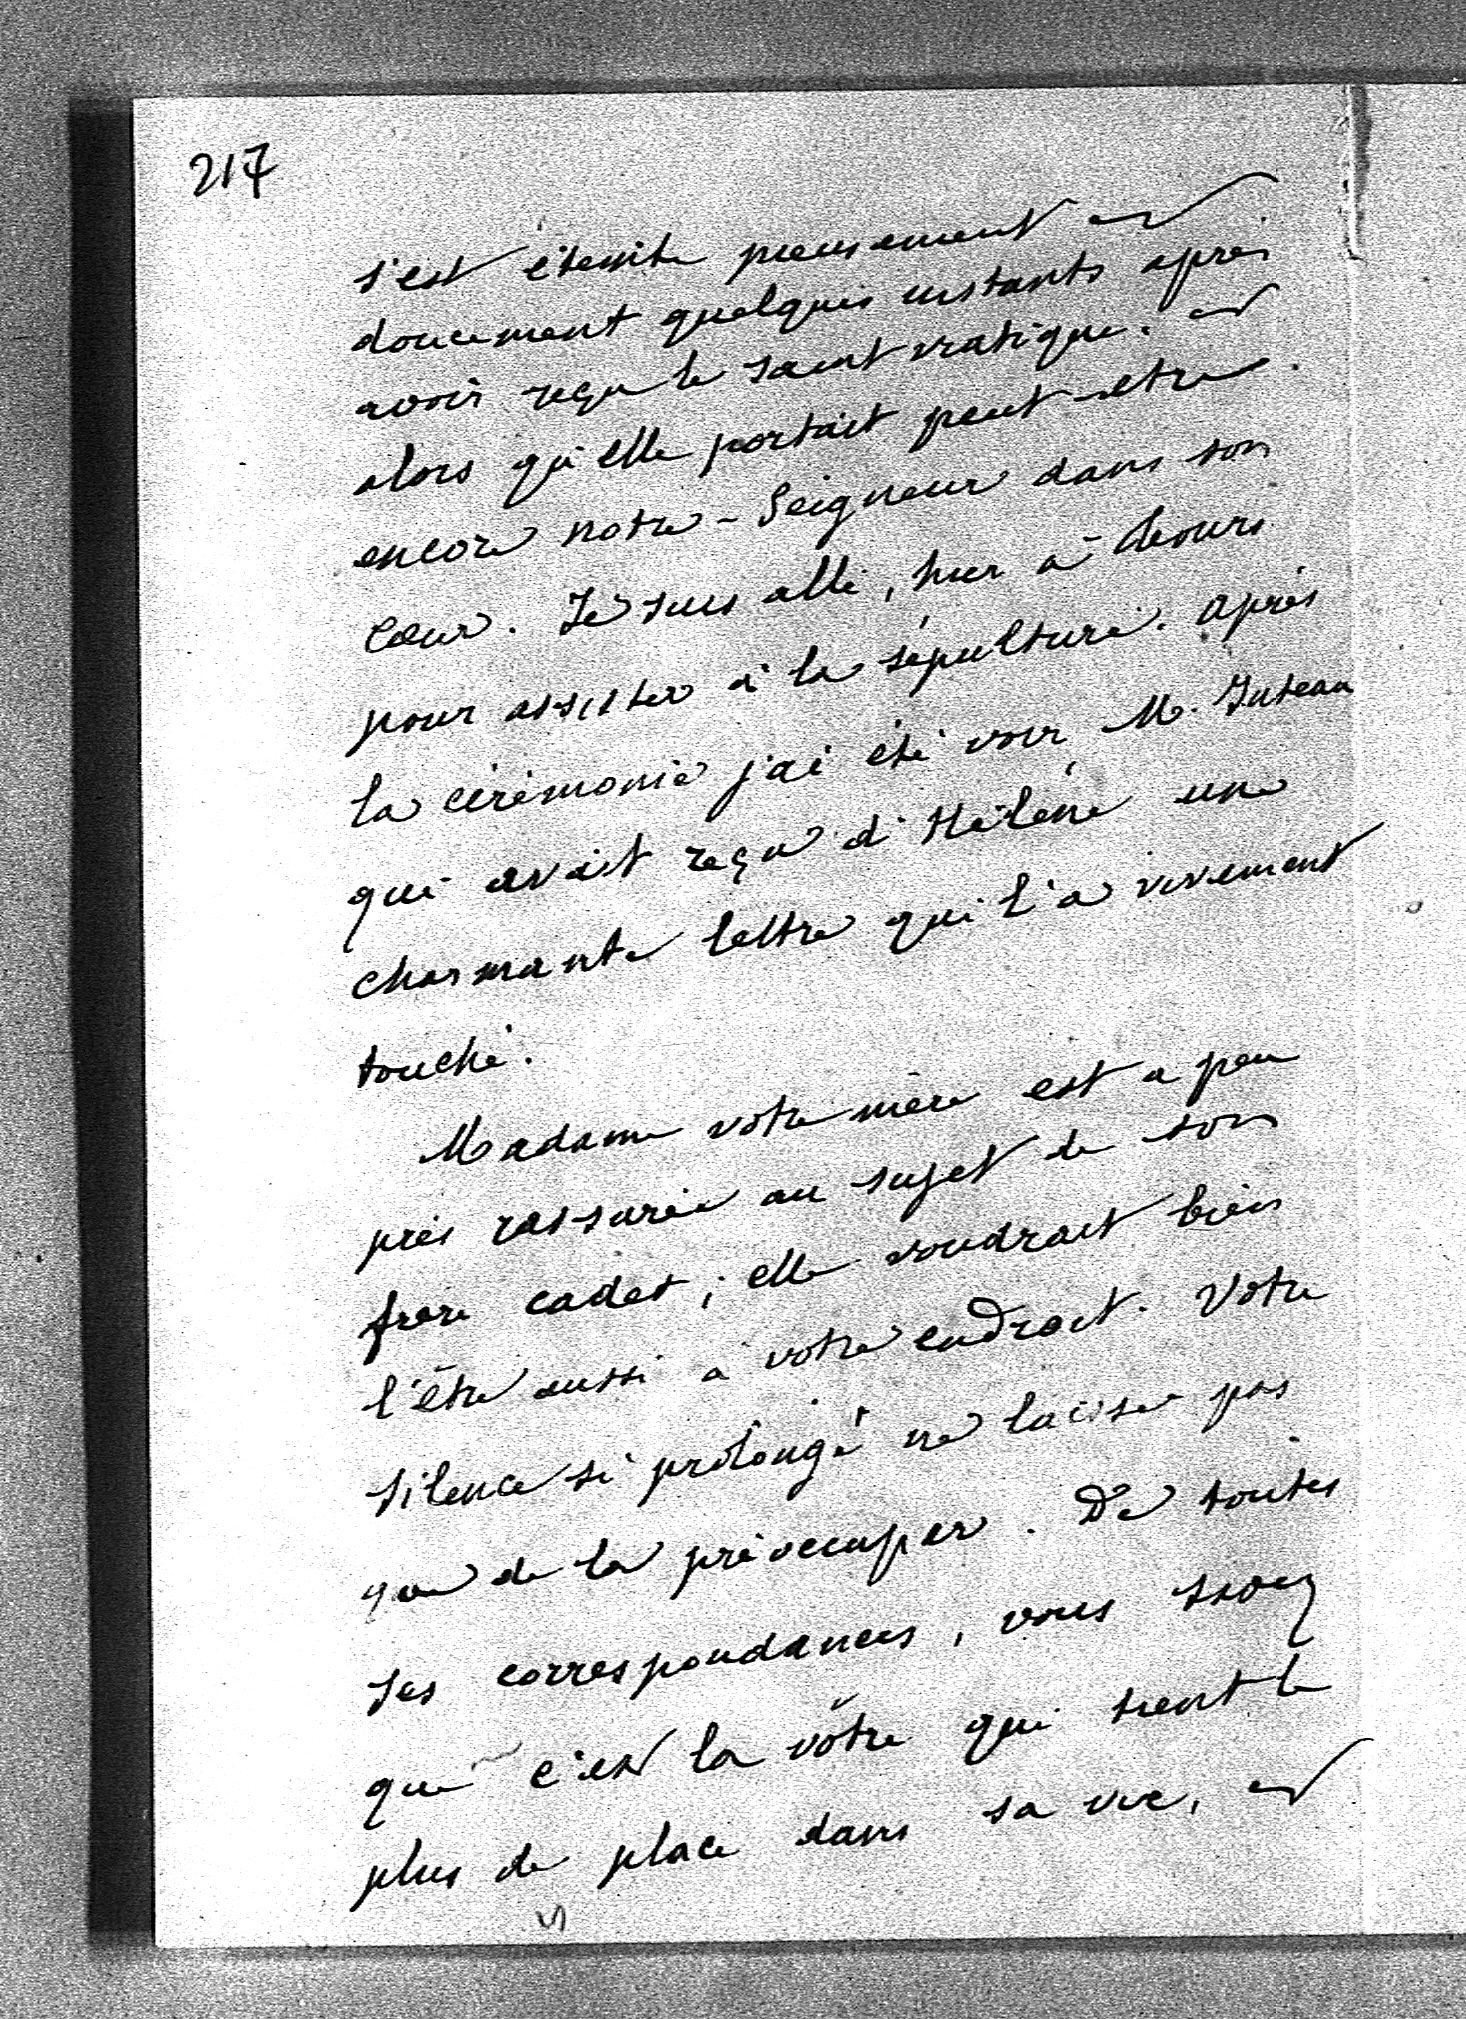 217
s'est éteinte pieusement et
doucement quelques instants après
avoir reçu le saint viatique. et
alors qu'elle portait peut-etre
encore notre-Seigneur dans son
cœur. Je suis allé, hier à
pour assister à la sépulture. Après
la cérémonie j'ai été voir M. Juteau
qui avait reçu d'Hélène une
charmante lettre qui l'a vivement
touché.
Madame votre mère est a peu
près rassurée au sujet de son
frère cadet; elle voudrait bien
l'être aussi à votre endroit. Votre
silence si prolongé ne laisse pas
que de la préoccuper. De toutes
ses correspondances, vous
que c'est la vôtre qui tient le
plus de place dans sa vie, et